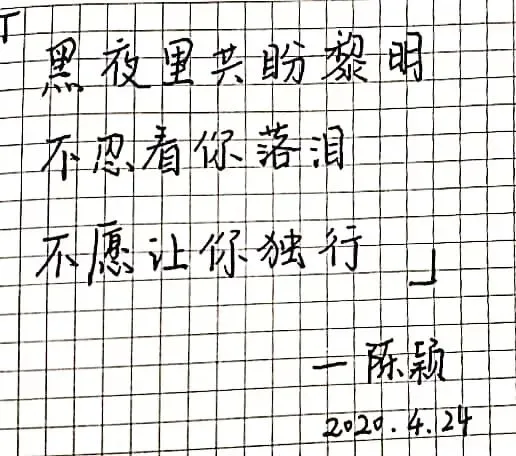 「黑夜里共盼黎明
不忍看你落泪
不愿让你独行」
—陈颖
2020.4.24